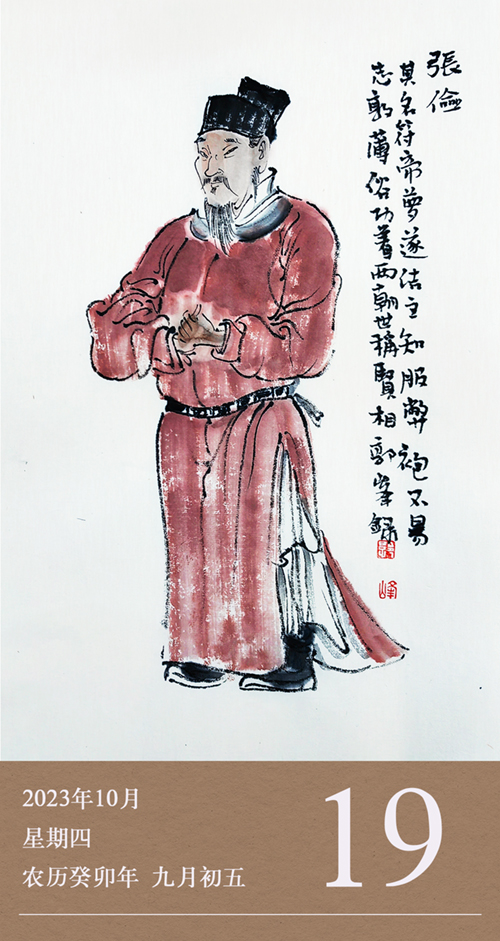 張儉
其名符帝夢遂結主知服弊袍不易
志敦薄俗功著兩朝世稱賢相郭峰錄
峰
2023年10月
星期四
农历癸卯年 九月初五
19